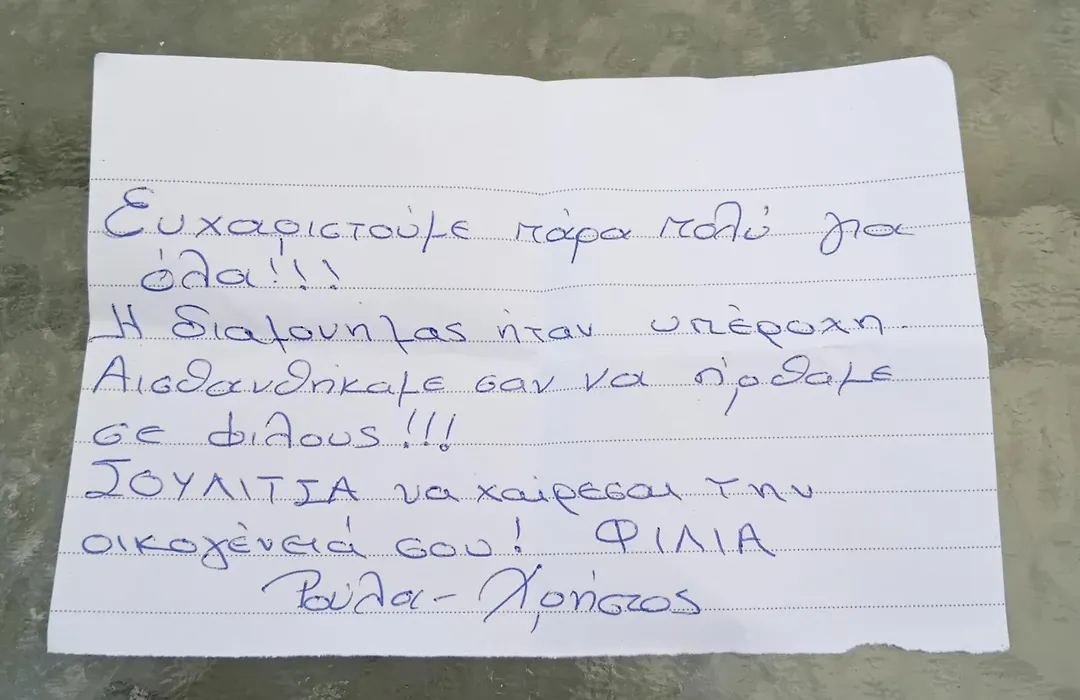 Ευχαριστούμε πάρα πολύ για
όλα!!!
Η διαμονη μας ήταν υπέροχη.
Αισθανθήκαμε σαν να ήρθαμε
σε φιλους!!!
ΣΟΥΛΙΤΣΑ να χαίρεσαι την
οικογένειά σου! ΦΙΛΙΑ
Ρούλα - Χρήστος